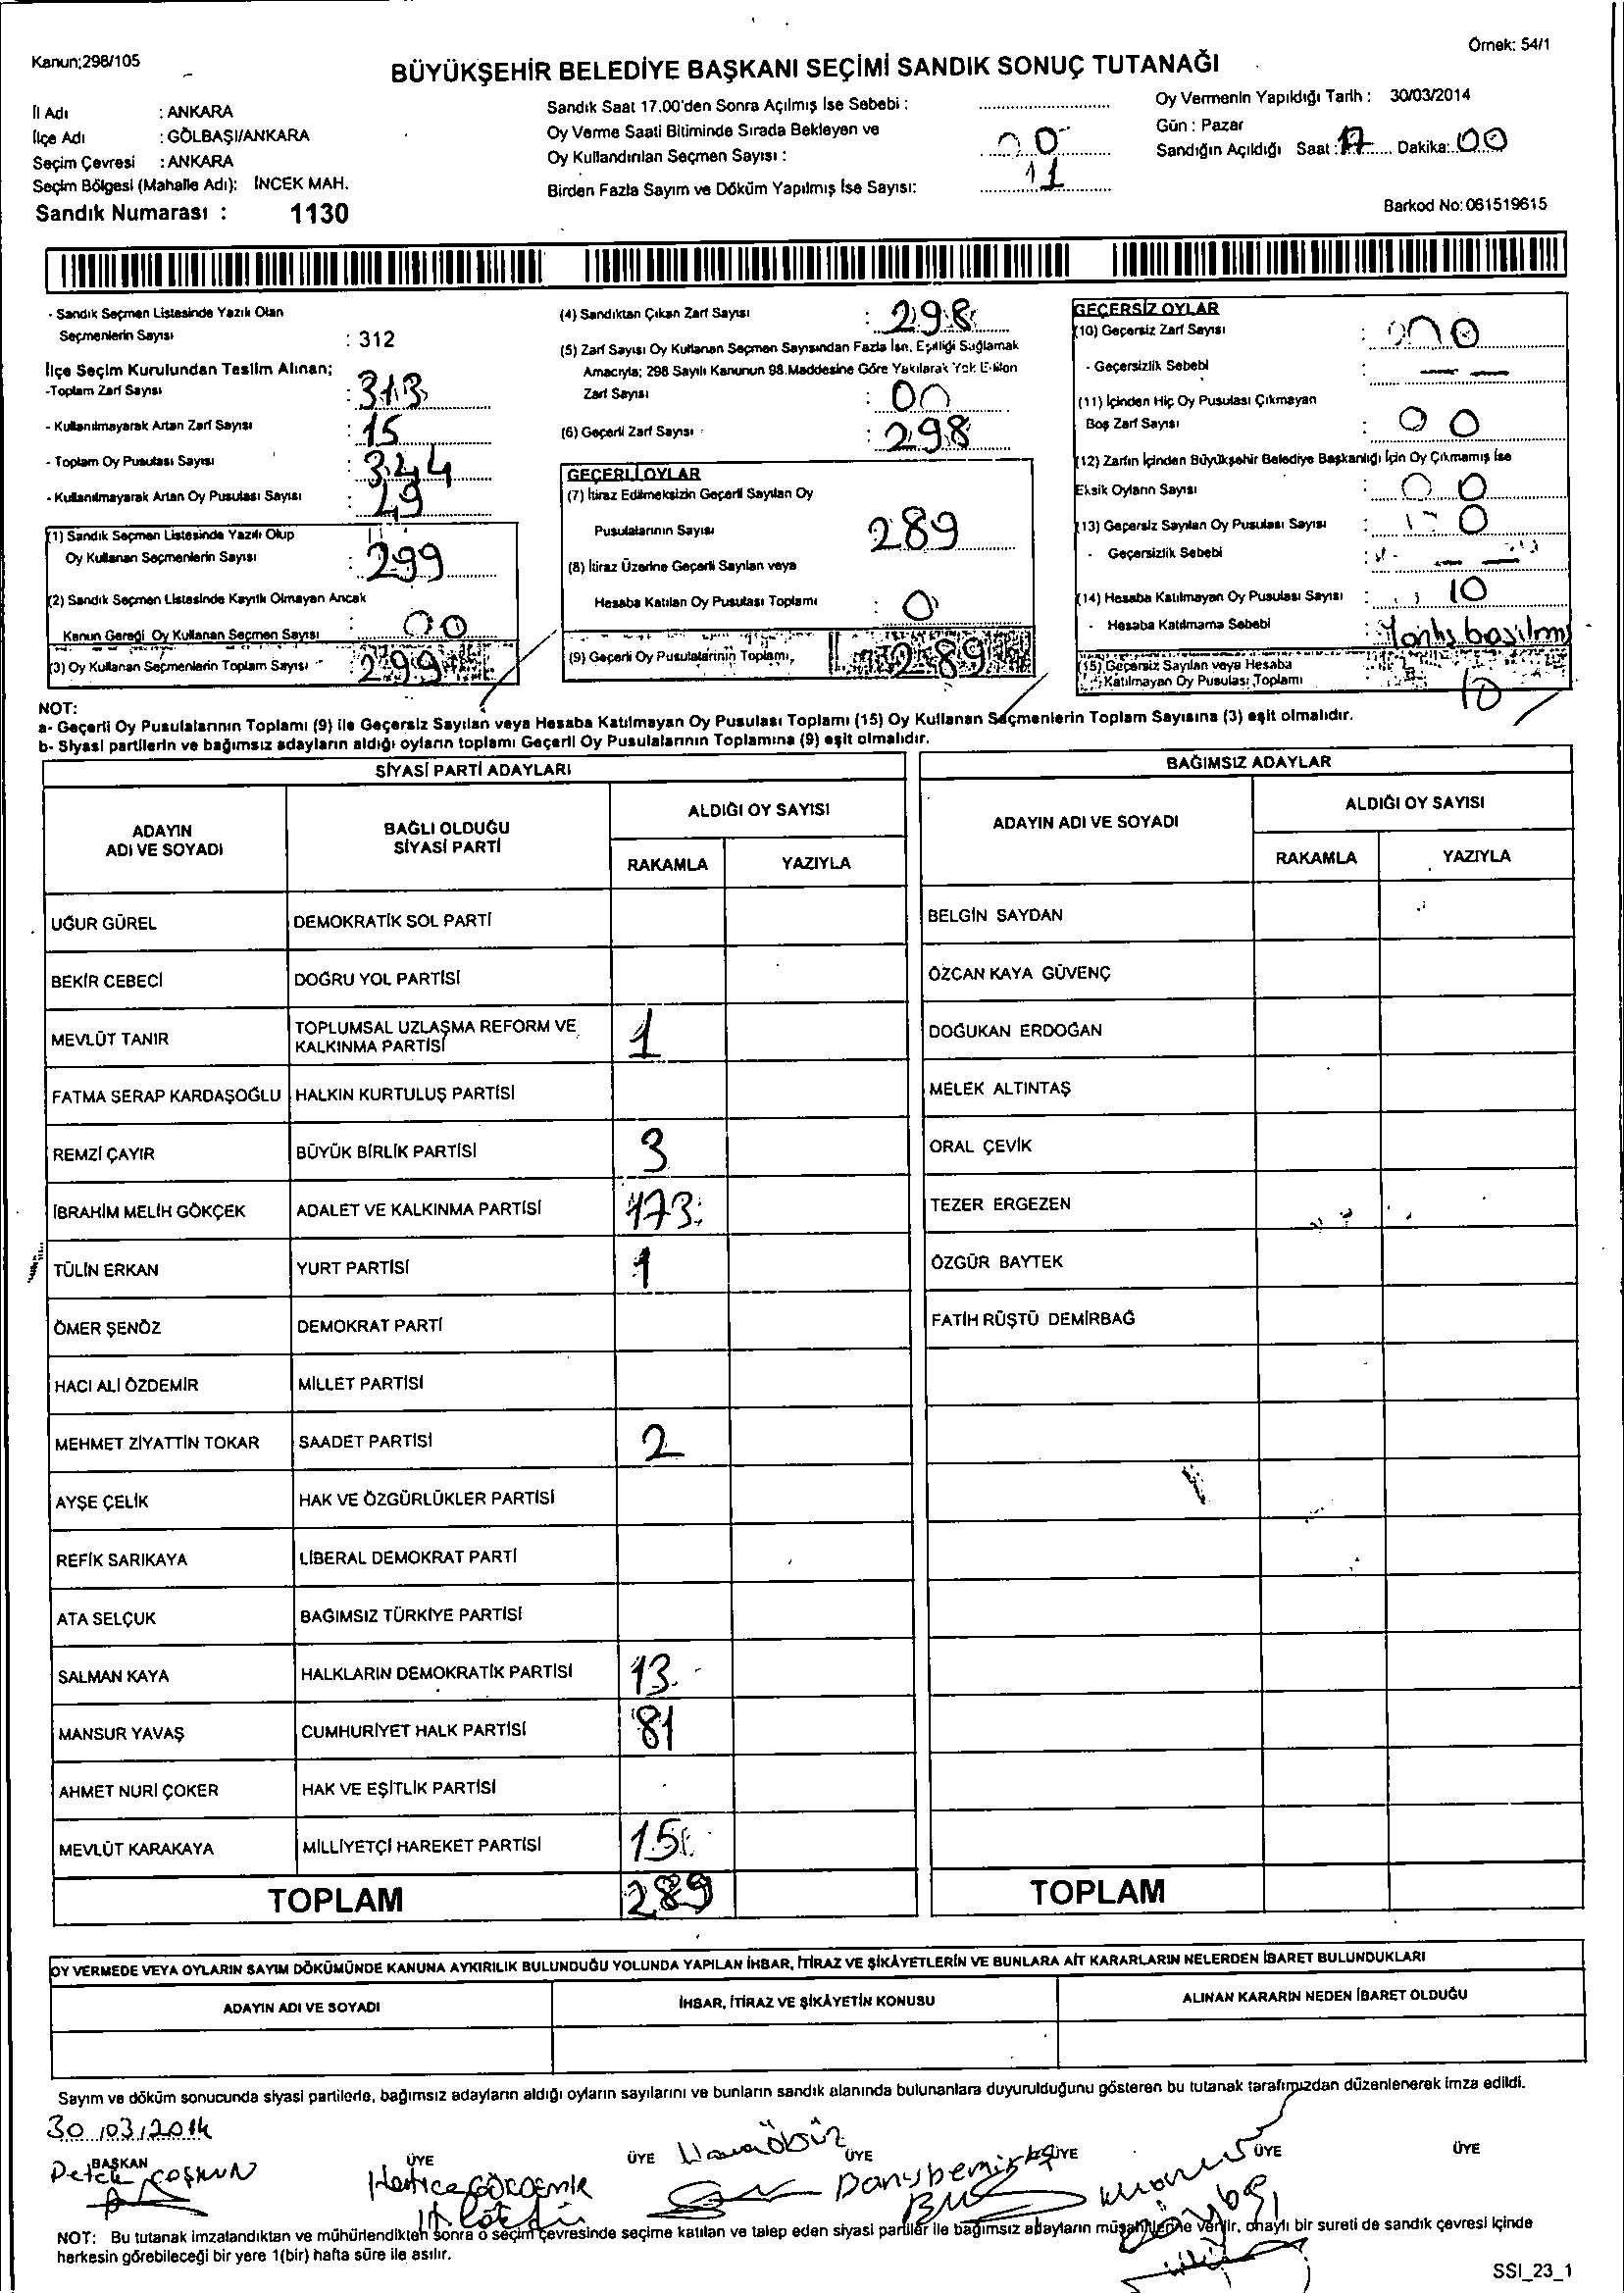 Kanun;298/105
Örnek: 54/1
BÜYÜKŞEHİR BELEDİYE BAŞKANI SEÇİMİ SANDIK SONUÇ TUTANAĞI
İl Adı : ANKARA
İlçe Adı : GÖLBAŞI/ANKARA
Seçim Çevresi : ANKARA
Seçim Bölgesi (Mahalle Adı): İNCEK MAH.
Sandık Numarası : 1130
Sandık Saat 17.00'den Sonra Açılmış İse Sebebi :
Oy Verme Saati Bitiminde Sırada Bekleyen ve
Oy Kullandırılan Seçmen Sayısı :
Birden Fazla Sayım ve Döküm Yapılmış İse Sayısı:
Oy Vermenin Yapıldığı Tarih : 30/03/2014
Gün : Pazar
Sandığın Açıldığı Saat : 17 Dakika: 00
Barkod No: 061519615
- Sandık Seçmen Listesinde Yazılı Olan
Seçmenlerin Sayısı : 312
İlçe Seçim Kurulundan Teslim Alınan;
-Toplam Zarf Sayısı : 313
- Kullanılmayarak Artan Zarf Sayısı : 15
- Toplam Oy Pusulası Sayısı : 344
- Kullanılmayarak Artan Oy Pusulası Sayısı : 49
(1) Sandık Seçmen Listesinde Yazılı Olup
Oy Kullanan Seçmenlerin Sayısı : 299
(2) Sandık Seçmen Listesinde Kayıtlı Olmayan Ancak
Kanun Gereği Oy Kullanan Seçmen Sayısı : 00
(3) Oy Kullanan Seçmenlerin Toplam Sayısı 299
(4) Sandıktan Çıkan Zarf Sayısı : 298
(5) Zarf Sayısı Oy Kullanan Seçmen Sayısından Fazla İse, Eşitliği Sağlamak
Amacıyla; 298 Sayılı Kanunun 98.Maddesine Göre Yakılarak Yok Edilen
Zarf Sayısı : 00
(6) Geçerli Zarf Sayısı : 298
GEÇERLİ OYLAR
(7) İtiraz Edilmeksizin Geçerli Sayılan Oy
Pusulalarının Sayısı 289
(8) İtiraz Üzerine Geçerli Sayılan veya
Hesaba Katılan Oy Pusulası Toplamı : 0
(9) Geçerli Oy Pusulalarının Toplamı, 289
GEÇERSİZ OYLAR
(10) Geçersiz Zarf Sayısı : 00
- Geçersizlik Sebebi
(11) İçinden Hiç Oy Pusulası Çıkmayan
Boş Zarf Sayısı : 00
(12) Zarfın İçinden Büyükşehir Belediye Başkanlığı İçin Oy Çıkmamış İse
Eksik Oyların Sayısı : 00
(13) Geçersiz Sayılan Oy Pusulası Sayısı : 0
- Geçersizlik Sebebi :
(14) Hesaba Katılmayan Oy Pusulası Sayısı : 10
- Hesaba Katılmama Sebebi :
(15) Geçersiz Sayılan veya Hesaba
Katılmayan Oy Pusulası Toplamı 10
NOT:
a- Geçerli Oy Pusulalarının Toplamı (9) ile Geçersiz Sayılan veya Hesaba Katılmayan Oy Pusulası Toplamı (15) Oy Kullanan Seçmenlerin Toplam Sayısına (3) eşit olmalıdır.
b- Siyasi partilerin ve bağımsız adayların aldığı oyların toplamı Geçerli Oy Pusulalarının Toplamına (9) eşit olmalıdır.
SİYASİ PARTİ ADAYLARI
ADAYIN ADI VE SOYADI
BAĞLI OLDUĞU SİYASİ PARTİ
ALDIĞI OY SAYISI
RAKAMLA YAZIYLA
UĞUR GÜREL DEMOKRATİK SOL PARTİ
BEKİR CEBECİ DOĞRU YOL PARTİSİ
MEVLÜT TANIR TOPLUMSAL UZLAŞMA REFORM VE KALKINMA PARTİSİ 1
FATMA SERAP KARDAŞOĞLU HALKIN KURTULUŞ PARTİSİ
REMZİ ÇAYIR BÜYÜK BİRLİK PARTİSİ 3
İBRAHİM MELİH GÖKÇEK ADALET VE KALKINMA PARTİSİ 173
TÜLİN ERKAN YURT PARTİSİ 1
ÖMER ŞENÖZ DEMOKRAT PARTİ
HACI ALİ ÖZDEMİR MİLLET PARTİSİ
MEHMET ZİYATTİN TOKAR SAADET PARTİSİ 2
AYŞE ÇELİK HAK VE ÖZGÜRLÜKLER PARTİSİ
REFİK SARIKAYA LİBERAL DEMOKRAT PARTİ
ATA SELÇUK BAĞIMSIZ TÜRKİYE PARTİSİ
SALMAN KAYA HALKLARIN DEMOKRATİK PARTİSİ 13
MANSUR YAVAŞ CUMHURİYET HALK PARTİSİ 81
AHMET NURİ ÇOKER HAK VE EŞİTLİK PARTİSİ
MEVLÜT KARAKAYA MİLLİYETÇİ HAREKET PARTİSİ 15
TOPLAM 289
BAĞIMSIZ ADAYLAR
ADAYIN ADI VE SOYADI
ALDIĞI OY SAYISI
RAKAMLA YAZIYLA
BELGİN SAYDAN
ÖZCAN KAYA GÜVENÇ
DOĞUKAN ERDOĞAN
MELEK ALTINTAŞ
ORAL ÇEVİK
TEZER ERGEZEN
ÖZGÜR BAYTEK
FATİH RÜŞTÜ DEMİRBAĞ
TOPLAM
OY VERMEDE VEYA OYLARIN SAYIM DÖKÜMÜNDE KANUNA AYKIRILIK BULUNDUĞU YOLUNDA YAPILAN İHBAR, İTİRAZ VE ŞİKÂYETLERİN VE BUNLARA AİT KARARLARIN NELERDEN İBARET BULUNDUKLARI
ADAYIN ADI VE SOYADI İHBAR, İTİRAZ VE ŞİKÂYETİN KONUSU ALINAN KARARIN NEDEN İBARET OLDUĞU
Sayım ve döküm sonucunda siyasi partilerle, bağımsız adayların aldığı oyların sayılarını ve bunların sandık alanında bulunanlara duyurulduğunu gösteren bu tutanak tarafımızdan düzenlenerek imza edildi.
30/03/2014
BAŞKAN ÜYE ÜYE ÜYE ÜYE ÜYE ÜYE
COŞKUN
NOT: Bu tutanak imzalandıktan ve mühürlendikten sonra o seçim çevresinde seçime katılan ve talep eden siyasi partiler ile bağımsız adayların müşahitlerine verilir, onaylı bir sureti de sandık çevresi içinde
herkesin görebileceği bir yere 1(bir) hafta süre ile asılır.
SSI_23_1